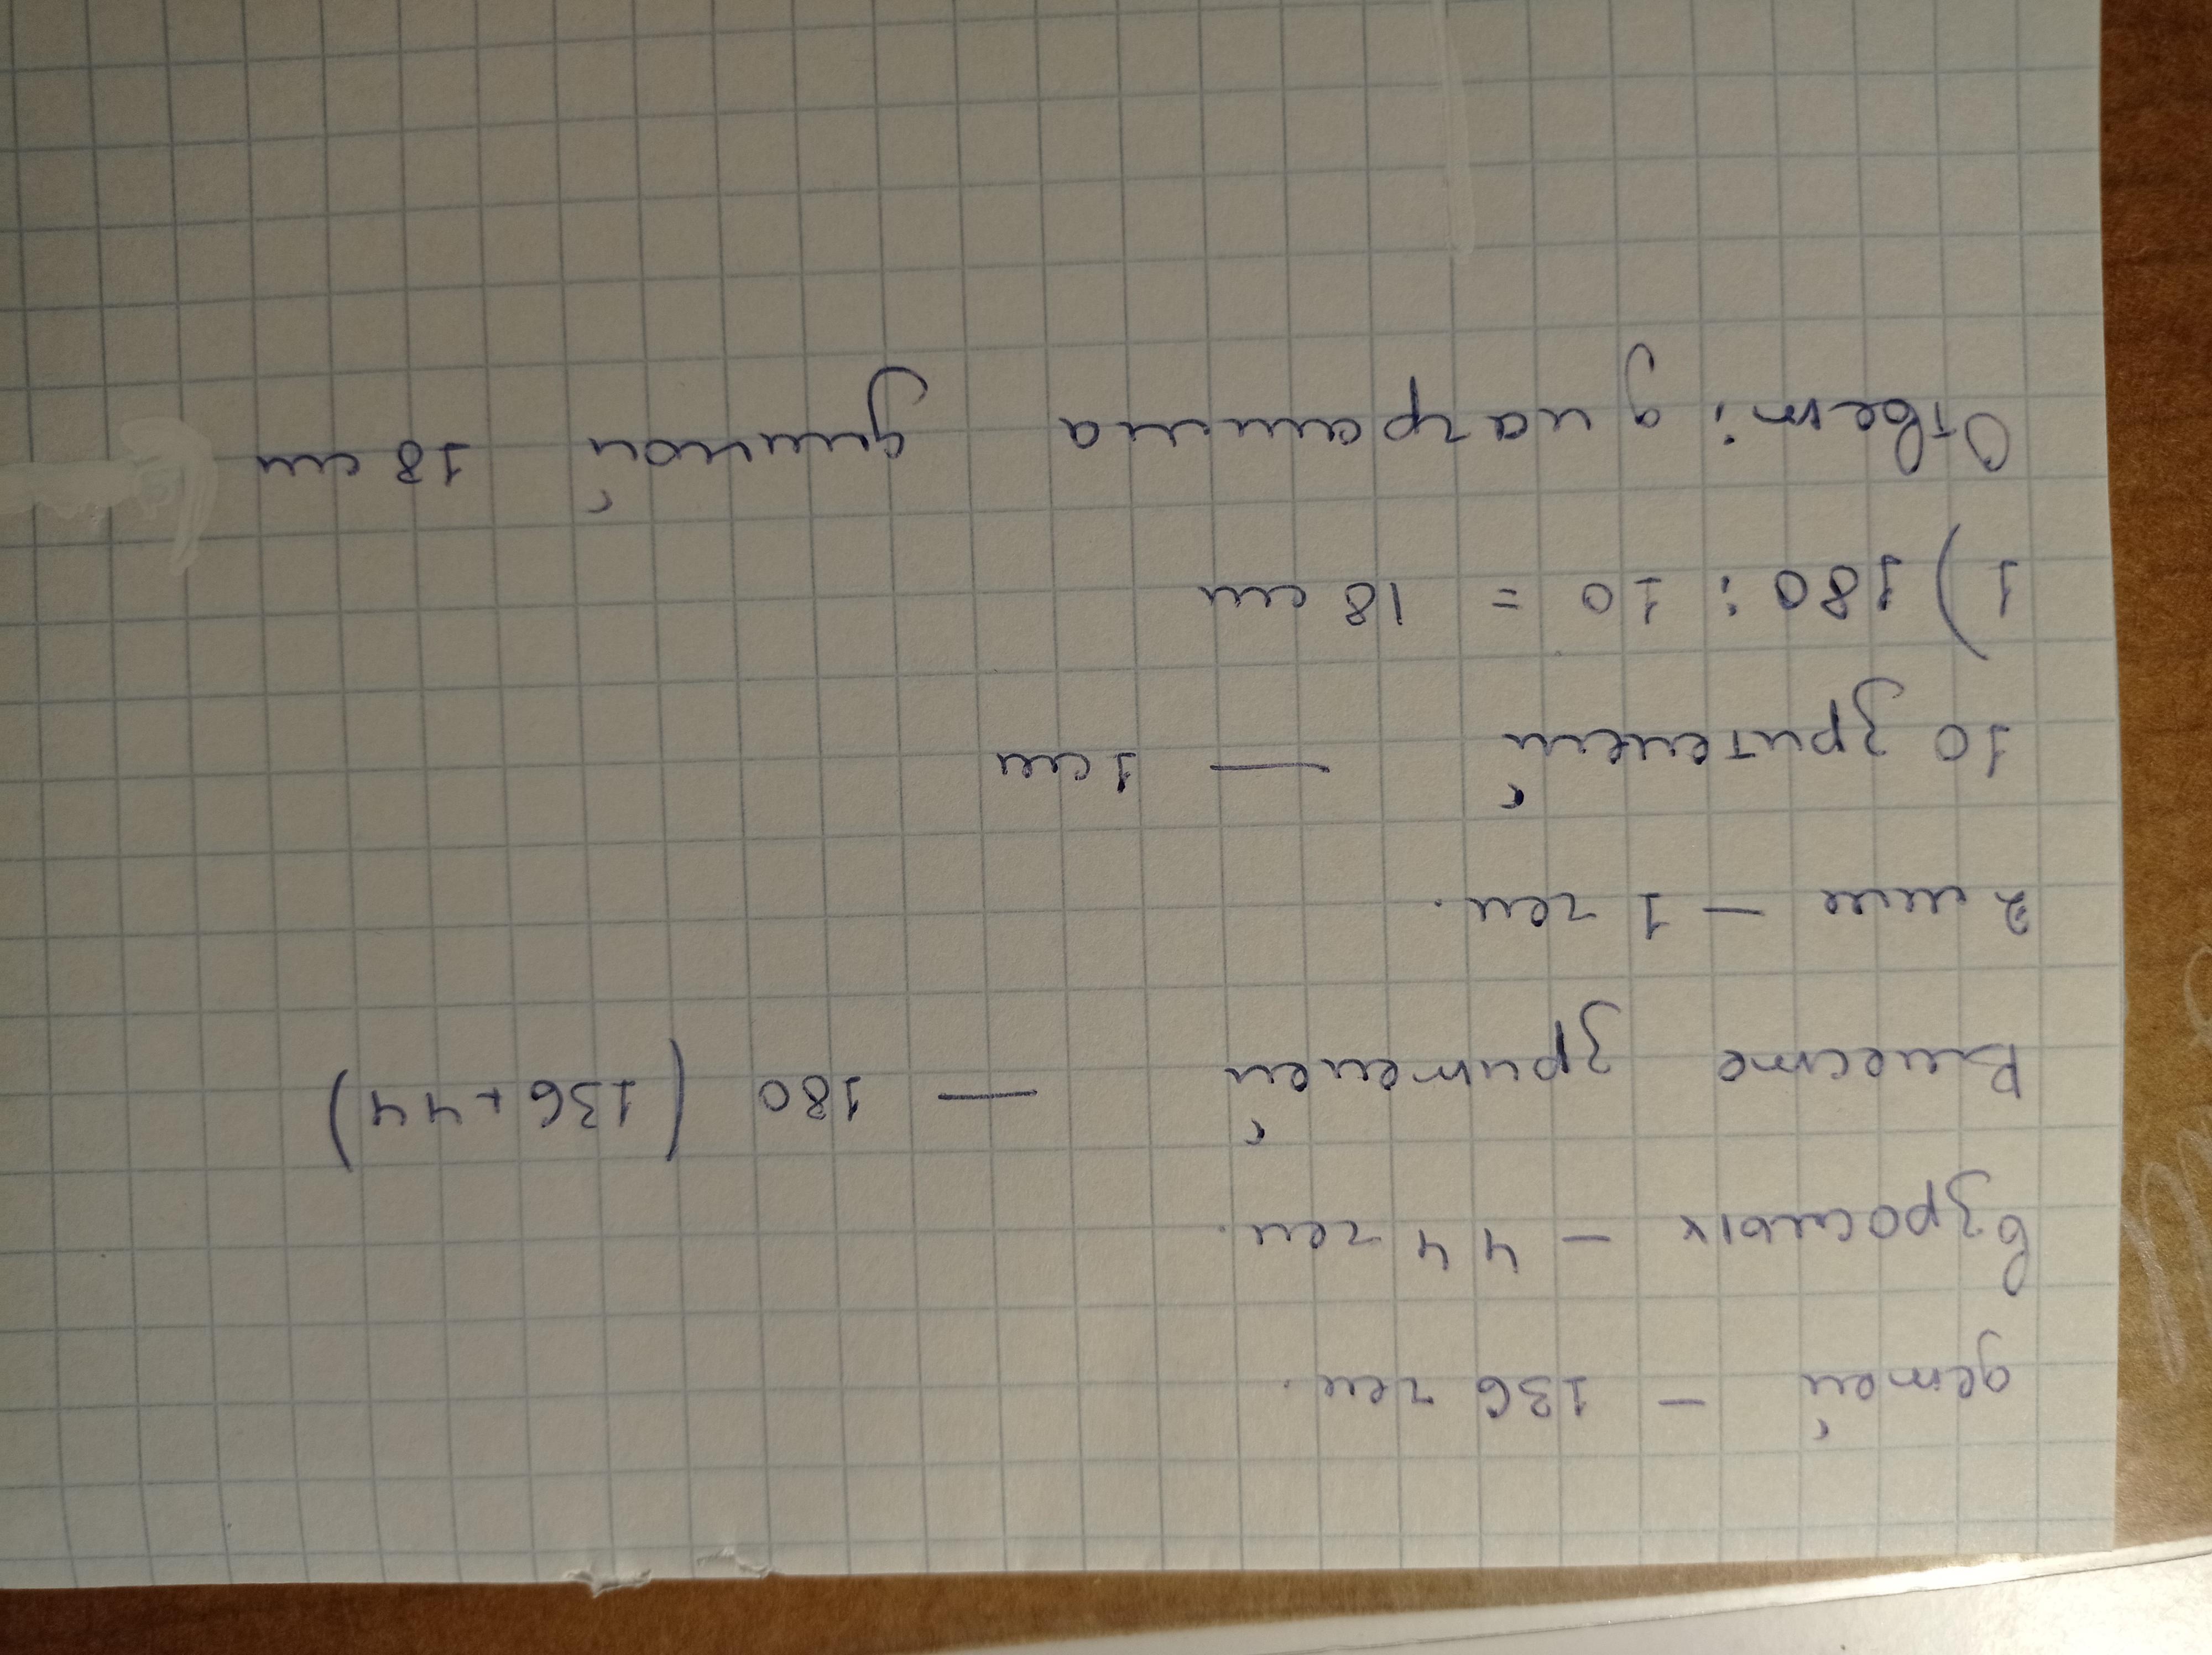 детей - 136 чел.
взрослых - 44 чел.
Вместе зрителей — 180 (136+44)
2 мм - 1 чел.
10 зрителей — 1 см
1) 180 : 10 = 18 см
Ответ: диаграмма длиной 18 см